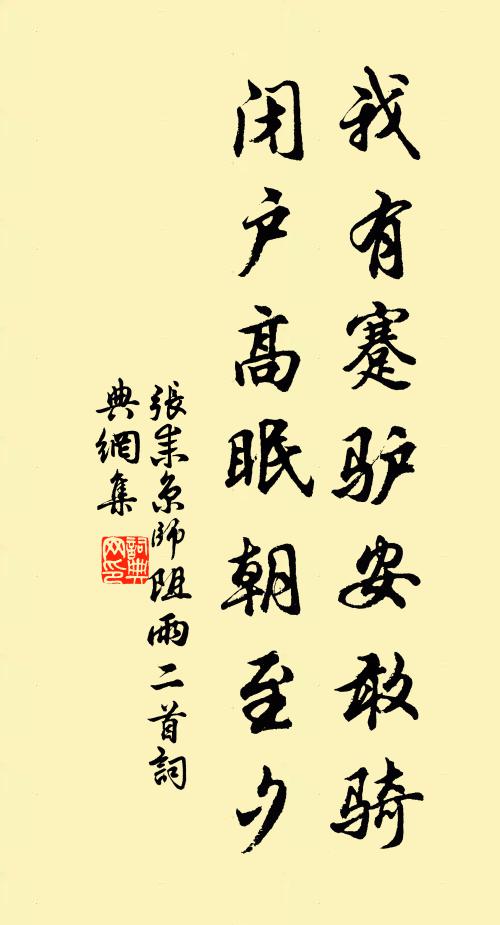 我有蹇驴安敢骑
闭户高眠朝至夕
張耒京師阻雨二首詞
典網集
詞典
网印